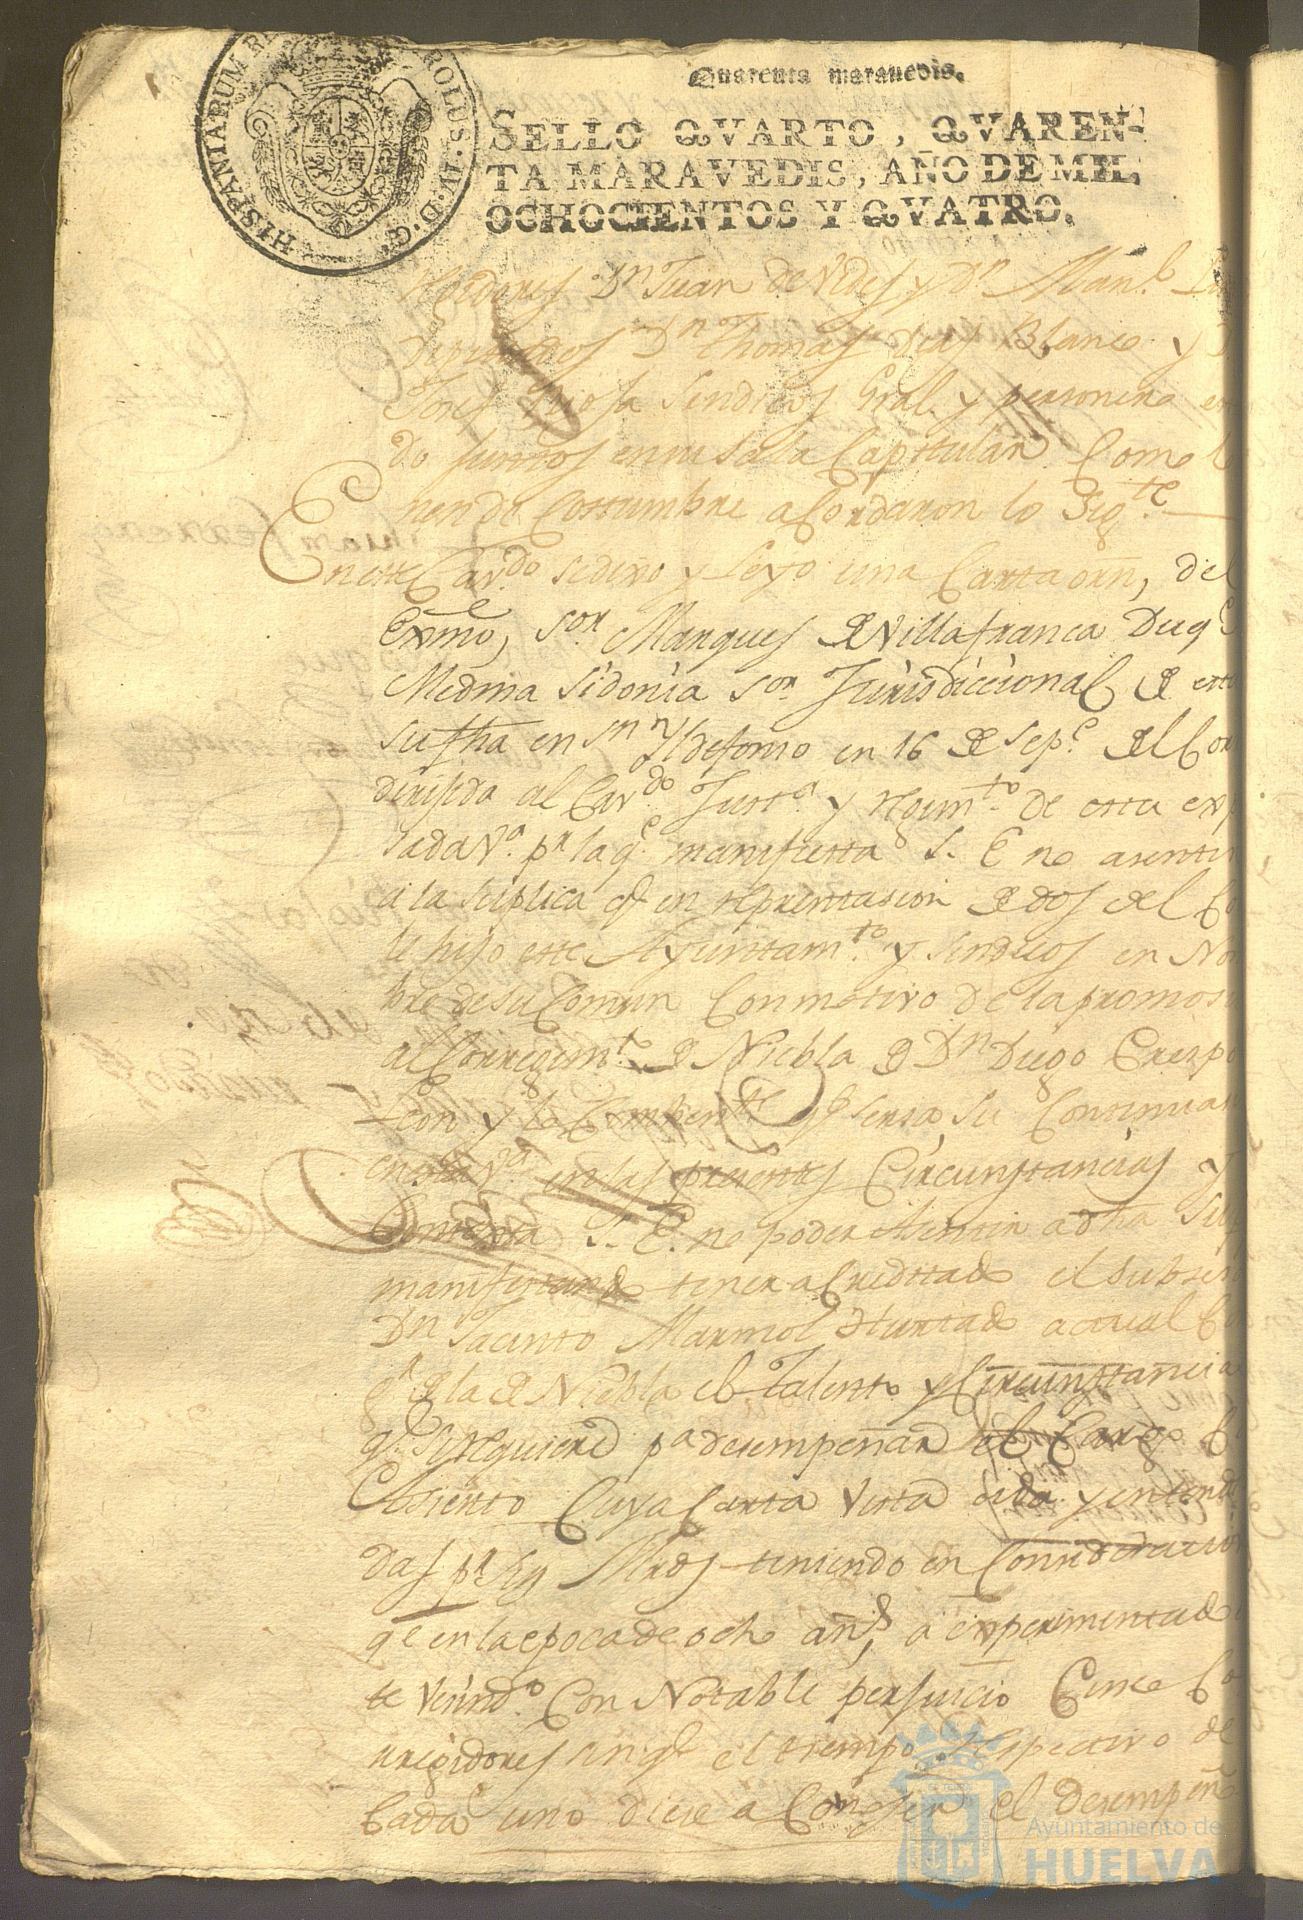 HISPANIARUM REX CAROLUS. IV. D. G.
Quarenta marauedis.
SELLO QVARTO, QVAREN-
TA MARAVEDIS, AÑO DE MIL
OCHOCIENTOS Y QVATRO.
Dn Juan de Vides y Dn Manl
Diputados Dn Thomas Dias Blanco y D
Josef Sindicos Gral. y personero
do juntos en su sala Capitular Como
nen de Costumbre acordaron lo Sigte
En este Cavdo se divo y Leyo una Carta orn, del
Exmo, sor Marques de Villafranca Duq
Medina Sidonia sor Jurisdiccional de esta
su fha en Sn Yldefonso en 16 de Sepe del Cor
dirijida al Cavdo Justa y regimto de esta exp
sada Va pr la qe manifiesta S. E no asentir
a la Suplica qe en representacion de dos del Co
le hiso este Ayuntamto y Sindicos en Nom
bre de su Comun Con motivo de la promos
al Corregimto de Niebla de Dn Diego Crespo
y la qe seria su Continuar
en esta Va en las presentes Circunstancias y
S. E. no poder asentir a dha Sup
manifestando tener acreditado el
Dn Jacinto Marmol Hurtado actual Co
de la de Niebla el Talento y Circunstancia
qe se requiere pa desempeñar el Cargo
Asiento Cuya Carta Vista oida y entendi
das pr Sus Mrds teniendo en Consideracion
qe en la epoca de ocho años, a experimentado
te Vecindo Con Notable perjuicio Cinco Co
rregidores sin qe el tiempo respectivo de
Cada uno diese a Conoser el desempeñ
Ayuntamiento de
HUELVA